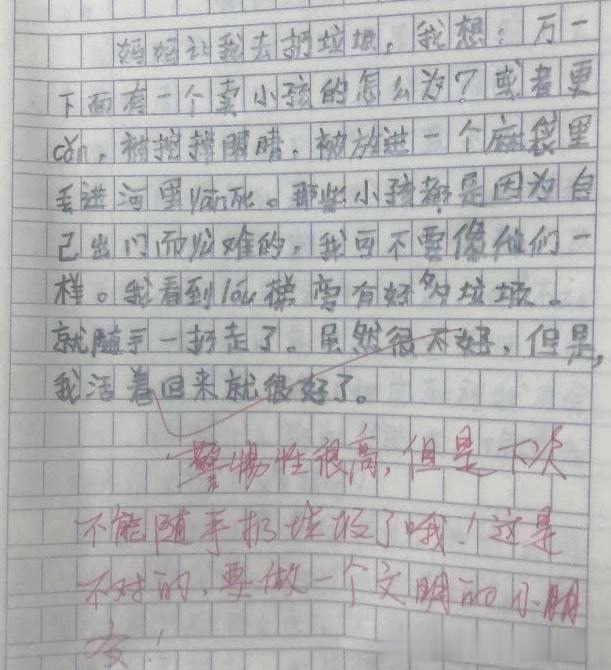 妈妈让我去扔垃圾，我想：万一
下面有一个卖小孩的怎么为？或者更
cǎn，被挖掉眼睛，被放进一个麻袋里
丢进河里yān死。那些小孩都是因为自
己出门而公难的，我可不要像他们一
样。我看到lóu梯旁有好多垃圾。
就随手一扔走了。虽然很不好，但是，
我活着回来就很好了。
警惕性很高，但是下次
不能随手扔垃圾了哦！这是
不对的，要做一个文明的小朋
友！